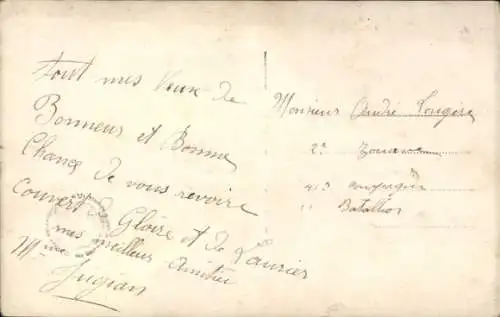 Tout mes Veux de
Bonneur et Bonne
Chance de vous revoire
Couvert de Gloire et de Laurier
mes meilleur Amitiée
Mme Jugian
Monsieur André
2e Zouave
4e
11 Batallion